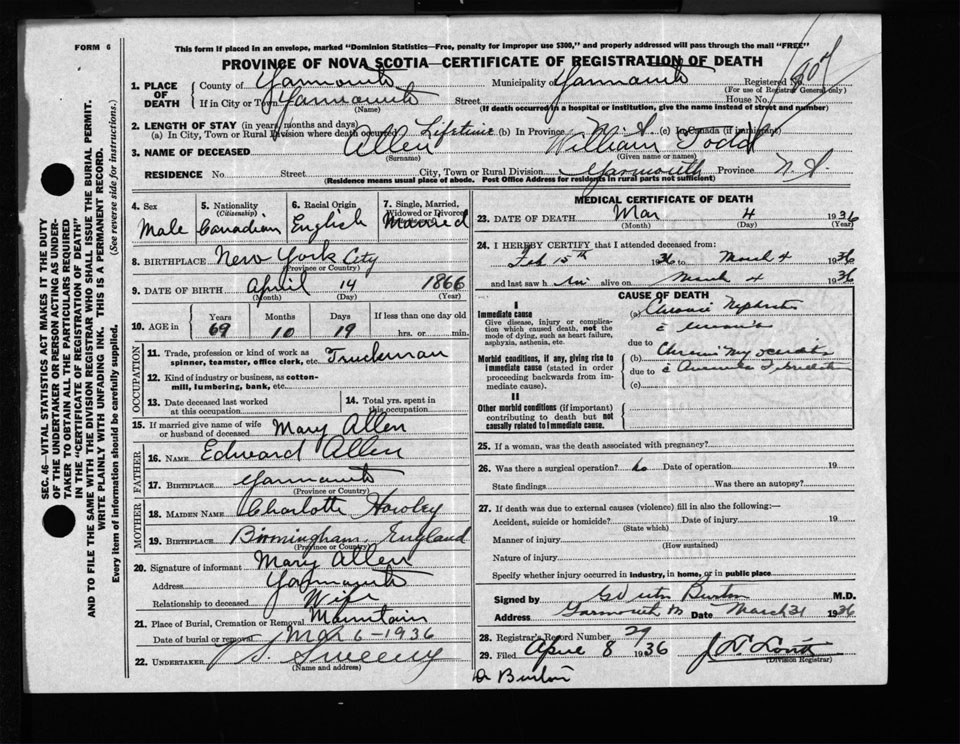 FORM 6
This form if placed in an envelope, marked "Dominion Statistics—Free, penalty for improper use $300," and properly addressed will pass through the mail "FREE"
PROVINCE OF NOVA SCOTIA—CERTIFICATE OF REGISTRATION OF DEATH
1. PLACE OF DEATH County of Yarmouth Municipality of Yarmouth Registered No.
(For use of Registrar General only)
If in City or Town Yarmouth Street House No.
(Name) (If death occurred in a hospital or institution, give the name instead of street and number)
2. LENGTH OF STAY (in years, months and days)
(a) In City, Town or Rural Division where death occurred Lifetime (b) In Province N. S. (c) In Canada (if immigrant)
3. NAME OF DECEASED Allen William Todd
(Surname) (Given name or names)
RESIDENCE No. Street City, Town or Rural Division Yarmouth Province N. S.
(Residence means usual place of abode. Post Office Address for residents in rural parts not sufficient)
SEC. 46—VITAL STATISTICS ACT MAKES IT THE DUTY
OF THE UNDERTAKER OR PERSON ACTING AS UNDER-
TAKER TO OBTAIN ALL THE PARTICULARS REQUIRED
IN THE "CERTIFICATE OF REGISTRATION OF DEATH"
AND TO FILE THE SAME WITH THE DIVISION REGISTRAR WHO SHALL ISSUE THE BURIAL PERMIT.
WRITE PLAINLY WITH UNFADING INK. THIS IS A PERMANENT RECORD.
Every item of information should be carefully supplied. (See reverse side for instructions.)
4. Sex Male
5. Nationality (Citizenship) Canadian
6. Racial Origin English
7. Single, Married, Widowed or Divorced Married
8. BIRTHPLACE New York City
(Province or Country)
9. DATE OF BIRTH April 14 1866
(Month) (Day) (Year)
10. AGE in Years 69 Months 10 Days 19 If less than one day old hrs. or min.
OCCUPATION
11. Trade, profession or kind of work as spinner, teamster, office clerk, etc. Truckman
12. Kind of industry or business, as cotton-mill, lumbering, bank, etc.
13. Date deceased last worked at this occupation
14. Total yrs. spent in this occupation
15. If married give name of wife or husband of deceased Mary Allen
FATHER
16. NAME Edward Allen
17. BIRTHPLACE Yarmouth
(Province or Country)
MOTHER
18. MAIDEN NAME Charlotte Howley
19. BIRTHPLACE Birmingham, England
(Province or Country)
20. Signature of informant Mary Allen
Address Yarmouth
Relationship to deceased Wife
21. Place of Burial, Cremation or Removal Mountain
Date of burial or removal Mar 6-1936
22. UNDERTAKER Sweeny
(Name and address)
MEDICAL CERTIFICATE OF DEATH
23. DATE OF DEATH Mar 4 1936
(Month) (Day) (Year)
24. I HEREBY CERTIFY that I attended deceased from:
Feb 15th 1936 to March 4 1936
and last saw him alive on March 4 1936
CAUSE OF DEATH
I
Immediate cause
Give disease, injury or complication which caused death, not the mode of dying, such as heart failure, asphyxia, asthenia, etc.
(a) Chronic Nephritis
due to
Morbid conditions, if any, giving rise to immediate cause (stated in order proceeding backwards from immediate cause).
(b) Chronic Myocarditis
due to
(c)
II
Other morbid conditions (if important) contributing to death but not causally related to immediate cause.
25. If a woman, was the death associated with pregnancy?
26. Was there a surgical operation? no Date of operation 19
State findings Was there an autopsy?
27. If death was due to external causes (violence) fill in also the following:—
Accident, suicide or homicide? Date of injury 19
(State which)
Manner of injury
(How sustained)
Nature of injury
Specify whether injury occurred in industry, in home, or in public place
Signed by Burton M.D.
Address Yarmouth Date March 31 1936
28. Registrar's Record Number 29
29. Filed April 8 1936
(Division Registrar)
Burton